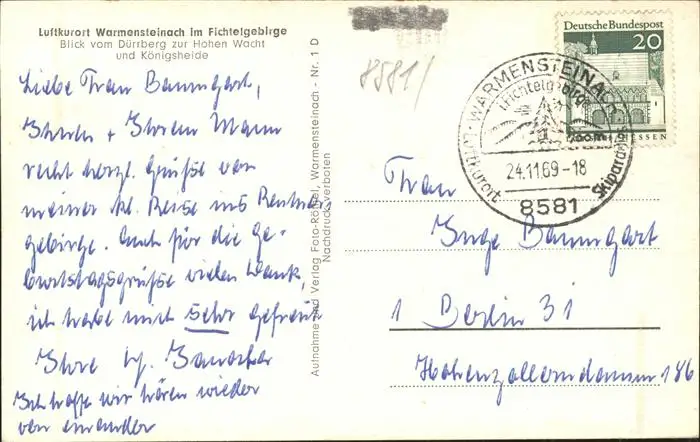 Luftkurort Warmensteinach im Fichtelgebirge
Blick vom Dürrberg zur Hohen Wacht
und Königsheide
Liebe Frau Baumgart,
Ihnen + Ihrem Mann
recht herzl. Grüße von
meiner kl. Reise ins
gebirge. Auch für die Ge-
burtstagsgrüße vielen Dank,
ich habe mich sehr gefreut
Ihre
Ich hoffe wir hören wieder
von einander
Aufnahme und Verlag Foto-Rößel, Warmensteinach - Nr. 1 D
Nachdruck verboten
8581/
Deutsche Bundespost
20
ESSEN
WARMENSTEINACH
Fichtelgebirge
Luftkurort
Skiparadies
24.11.69-18
8581
Frau
Inge Baumgart
1 Berlin 31
Hohenzollerndamm 186